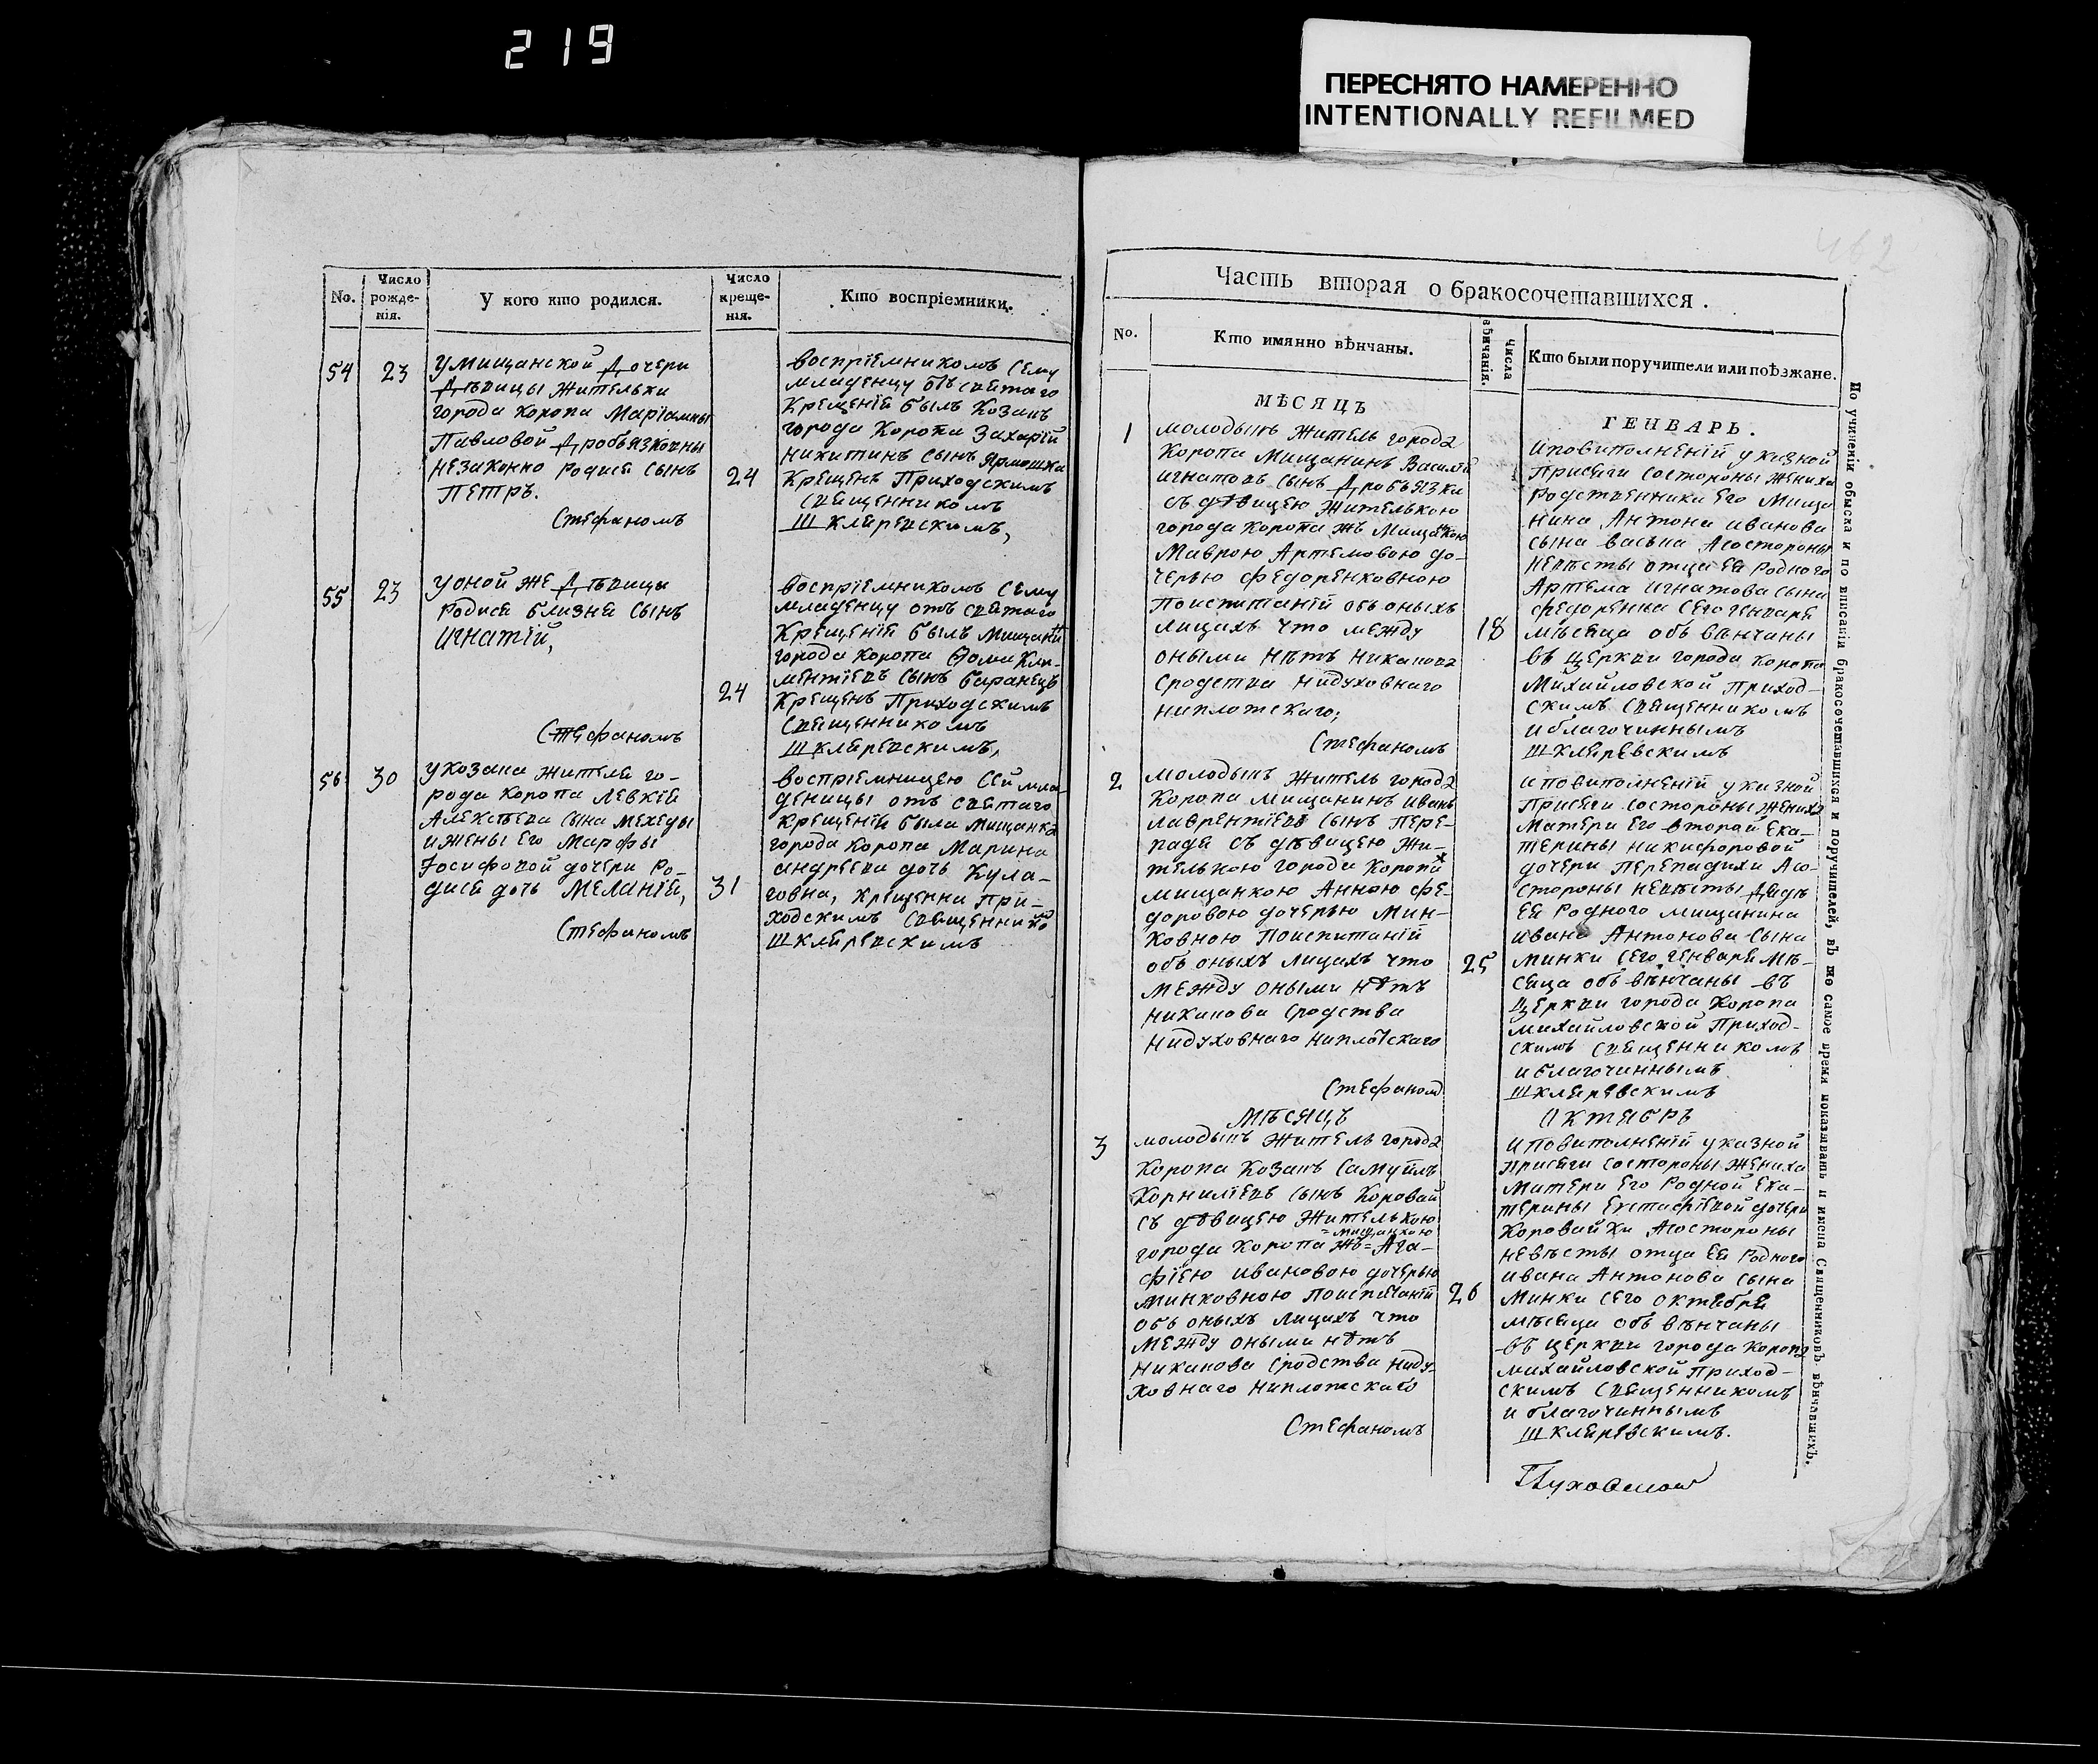 219
ПЕРЕСНЯТО НАМЕРЕННО
INTENTIONALLY REFILMED
No.
Число рожде-нія.
У кого кто родился.
Число креще-нія.
Кто воспріемники.
54
23
У мищанской дочери
дѣвицы жительки
города Коропа Маріамны
Павловой дробязковны
незаконно родися сынъ
Петръ.
Стефаномъ
24
воспріемникомъ сему
младенцу отъ святаго
крещенія былъ козакъ
города Коропа Захарій
Никитинъ сынъ Ярмошка
Крещенъ Приходскимъ
священникомъ
Шкляревскимъ,
55
23
У оной же дѣвицы
родися близня сынъ
Игнатій,
Стефаномъ
24
воспріемникомъ сему
младенцу отъ святаго
крещенія былъ мищани
города Коропа Фома Кли-
ментіевъ сынъ баранецъ
Крещенъ Приходскимъ
священникомъ
Шкляревскимъ,
56
30
У козака жителя го-
рода Коропа Левкія
Алексѣева сына Мехеды
и жены его Марфы
Іосифовой дочери ро-
дися дочь Меланія,
Стефаномъ
31
воспріемницею сей мла-
деницы отъ святаго
крещенія была мищанка
города Коропа Марина
андреева дочь Кула-
говна, крещенна при-
ходскимъ священнико
Шкляревскимъ
Часть вторая о бракосочетавшихся.
No.
Кто имянно вѣнчаны.
Числа вѣнчанія.
Кто были поручители или поѣзжане.
МѢСЯЦЪ
ГЕНВАРЬ.
1
молодыкъ житель города
Коропа мищанинъ Василій
игнатовъ сынъ дробязка
съ дѣвицею жителькою
города Коропа жъ мищанкою
Маврою Артемовою до-
черью федоренковною
По испитаній объ оныхъ
лицахъ что между
оными нѣтъ никакова
сродства нидуховнаго
ниплотскаго;
Стефаномъ
18
и повиполненій указной
присяги состороны жениха
родственника его мища
нина Антона иванова
сына васька А состороны
невѣсты отца ея родного
Артема игнатова сына
федоренка сего генваря
мѣсяца объ вѣнчаны
въ церкви города Коропа
Михайловской Приход-
скимъ священникомъ
и благочиннымъ
Шкляревскимъ
2
молодыкъ житель города
Коропа мищанинъ иванъ
лаврентіевъ сынъ пере-
падя съ дѣвицею жи-
телькою города Коропа
мищанкою Анною фе-
доровою дочерью мин-
ковною По испитаній
объ оныхъ лицахъ что
между оными нѣтъ
никакова сродства
нидуховнаго ниплотскаго
Стефаном
25
и повиполненій указной
присяги состороны жениха
матери его второй Ека-
терины никифоровой
дочери перепадихи А со-
стороны невѣсты дядѣ
ея родного мищанина
ивана Антонова сына
минки сего генваря мѣ-
сяца объ вѣнчаны въ
церкви города Коропа
михайловской Приход-
скимъ священникомъ
и благочиннымъ
Шкляревскимъ
МѢСЯЦЪ
ОКТЯБРЬ
3
молодыкъ житель города
Коропа козакъ Самуилъ
Корниліевъ сынъ Коровай
съ дѣвицею жителькою
=мищанкою
города Коропа жъ= Ага-
фіею ивановою дочерью
минковною По испичаній
объ оныхъ лицахъ что
между оными нѣтъ
никакова сродства ниду-
ховнаго ниплотскаго
Стефаномъ
26
и повиполненій указной
присяги состороны жениха
матери его родной Ека-
терины Евстафіевой дочери
Коровайки А состороны
невѣсты отца ея родного
ивана Антонова сына
минки сего октября
мѣсяца объ вѣнчаны
въ церкви города Коропа
михайловской приход-
скимъ священникомъ
и благочиннымъ
Шкляревскимъ.
По учиненіи обыска и по вписаніи бракосочетавшихся и поручителей, въ то самое время показывать и имена Священниковъ вѣнчавшихъ.